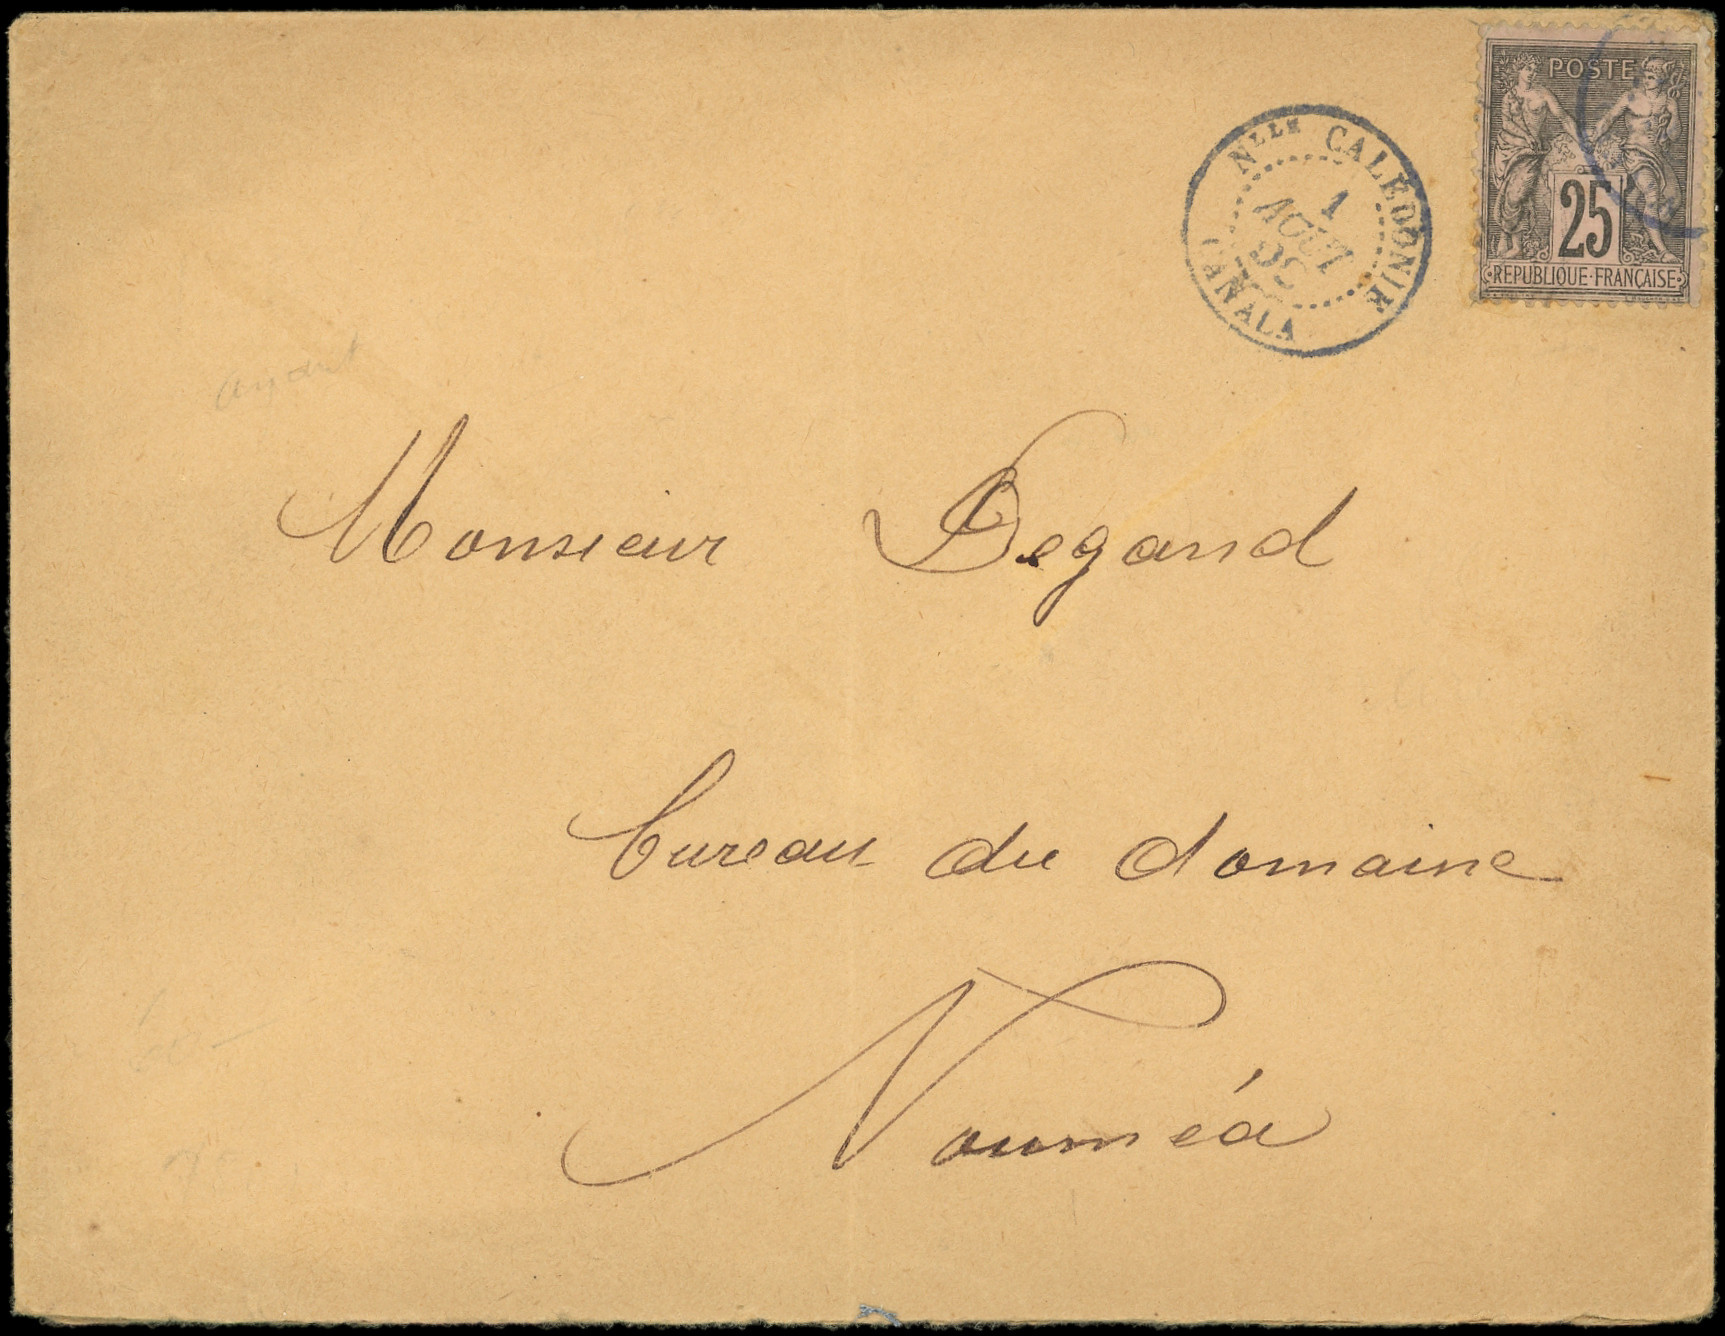 POSTE
25
REPUBLIQUE·FRANÇAISE
Nlle CALÉDONIE
1
AOUT
CANALA
Monsieur Degand
bureau du domaine
Nouméa